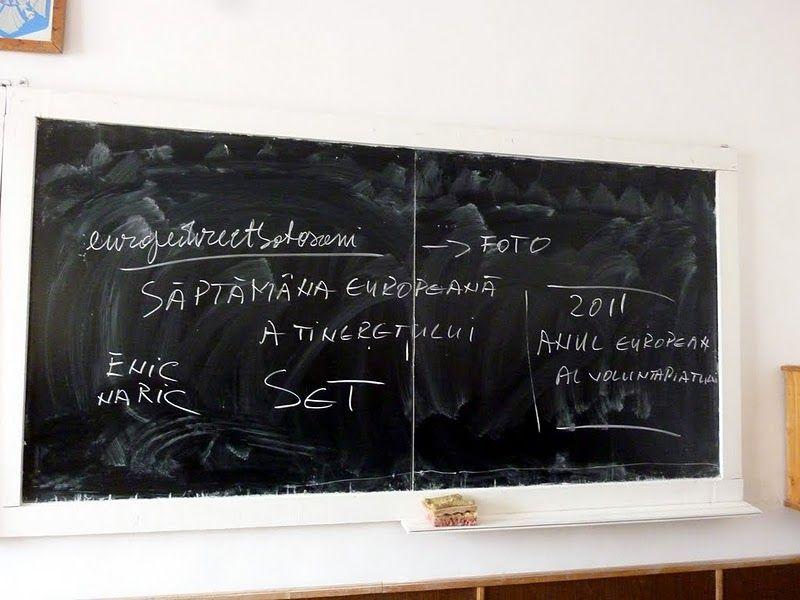 europedirectbotosani → FOTO
SĂPTĂMÂNA EUROPEANĂ
A TINERETULUI
ENIC
NARIC
SET
2011
ANUL EUROPEAN
AL VOLUNTARIATULUI